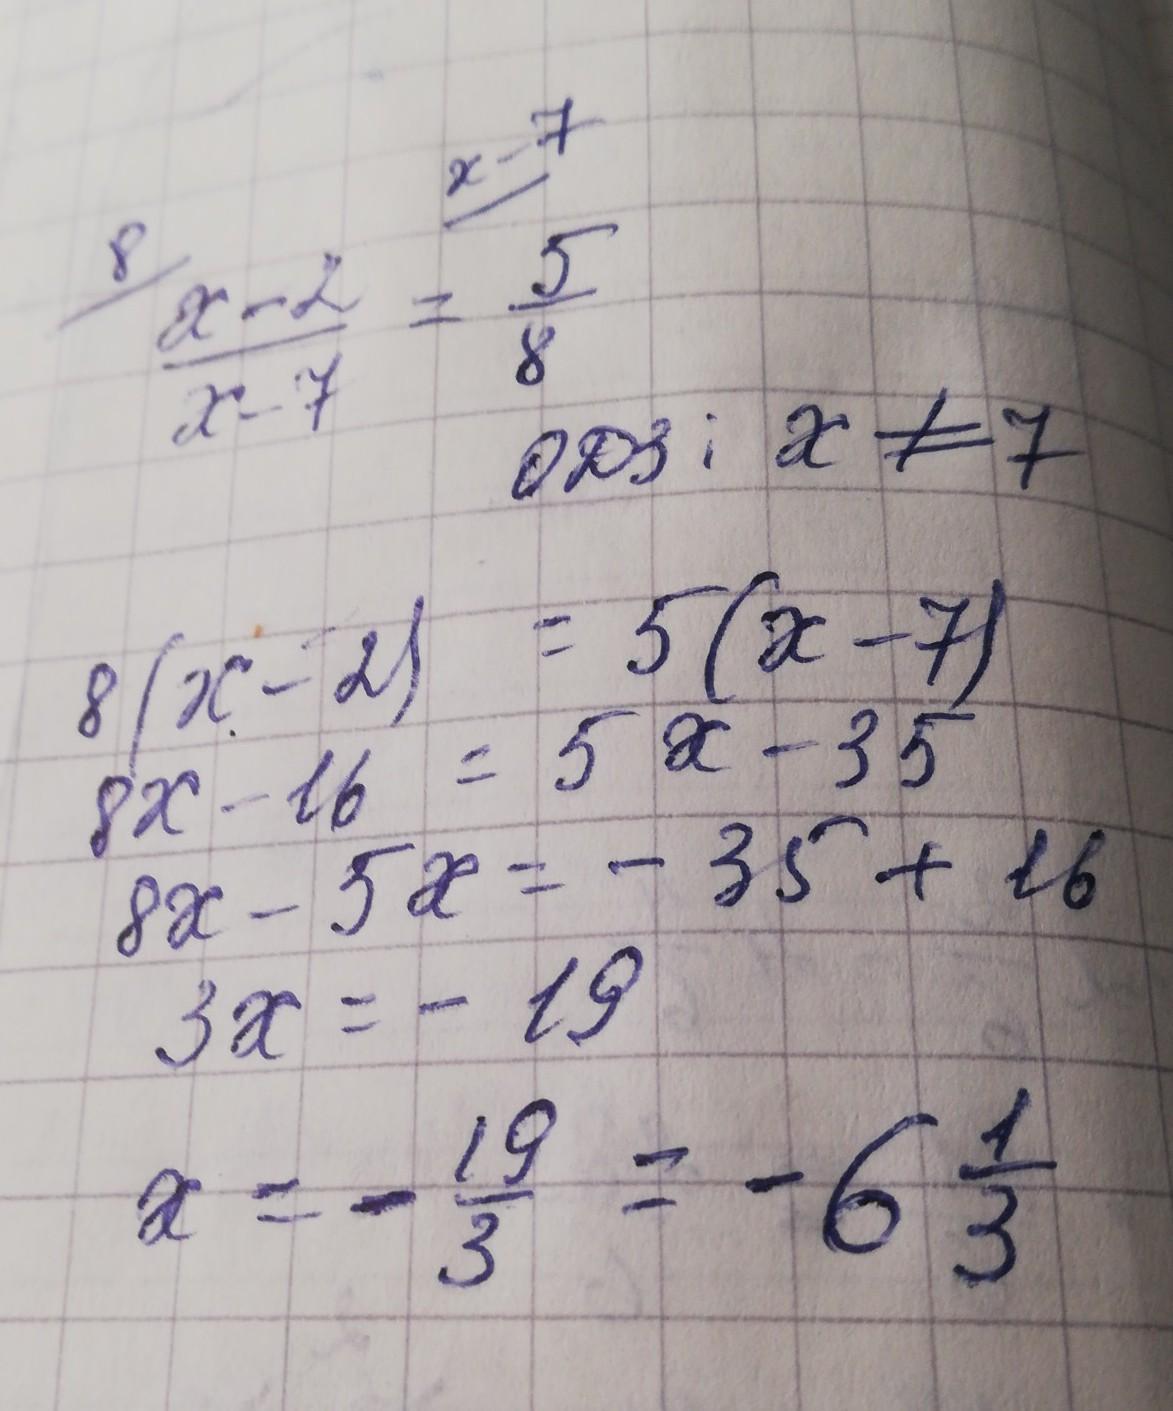 8/ (x-2)/(x-7) = x-7/ 5/8
ОДЗ: x ≠ 7
8(x-2) = 5(x-7)
8x-16 = 5x-35
8x-5x = -35+16
3x = -19
x = -19/3 = -6 1/3